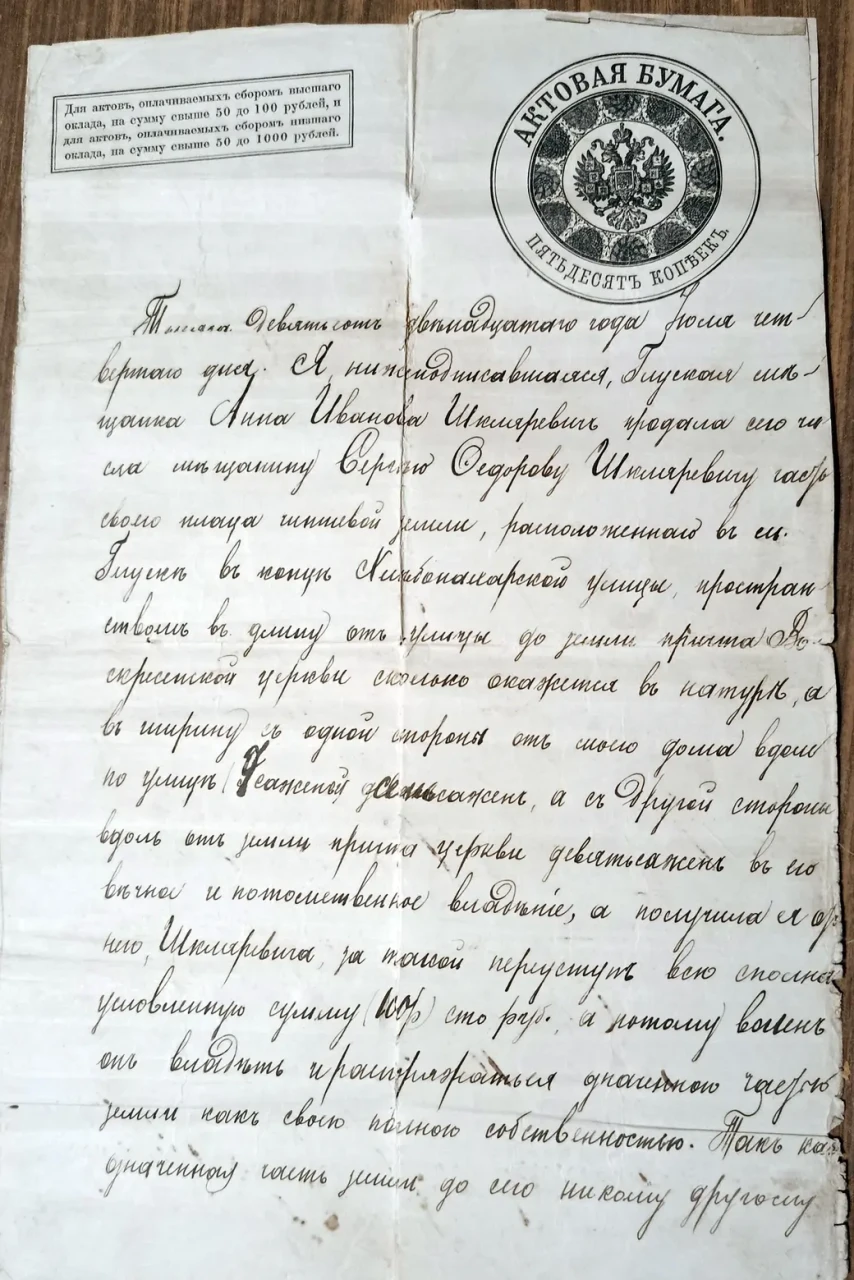 Для актовъ, оплачиваемыхъ сборомъ высшаго
оклада, на сумму свыше 50 до 100 рублей, и
для актовъ, оплачиваемыхъ сборомъ низшаго
оклада, на сумму свыше 50 до 1000 рублей.
АКТОВАЯ БУМАГА.
ПЯТЬДЕСЯТЪ КОПѢЕКЪ.
Тысяча девятьсотъ двѣнадцатаго года Іюля чет-
вертаго дня. Я, нижеподписавшаяся, Глуская мѣ-
щанка Анна Иванова Шкляревичъ продала сего чи
сла мѣщанину Сергѣю Ѳедорову Шкляревичу часть
своего плаца чиншевой земли, расположеннаго въ м.
Глускѣ въ концѣ улицы, простран
ствомъ въ длину отъ улицы до земли причта Во-
скресенской церкви сколько окажется въ натурѣ, а
въ ширину съ одной стороны отъ моего дома вдоль
по улицѣ саженъ, а съ другой стороны
вдоль отъ земли причта церкви девятьсаженъ въ его
вѣчное и потомственное владѣніе, а получила я отъ
него, Шкляревича, за такой переступъ всю сполна
условленную сумму (100р) сто руб., а потому воленъ
онъ владѣть и распоряжаться означенною частью
земли какъ свою полною собственностью. Такъ ка
означенная часть земли до сего никому другому